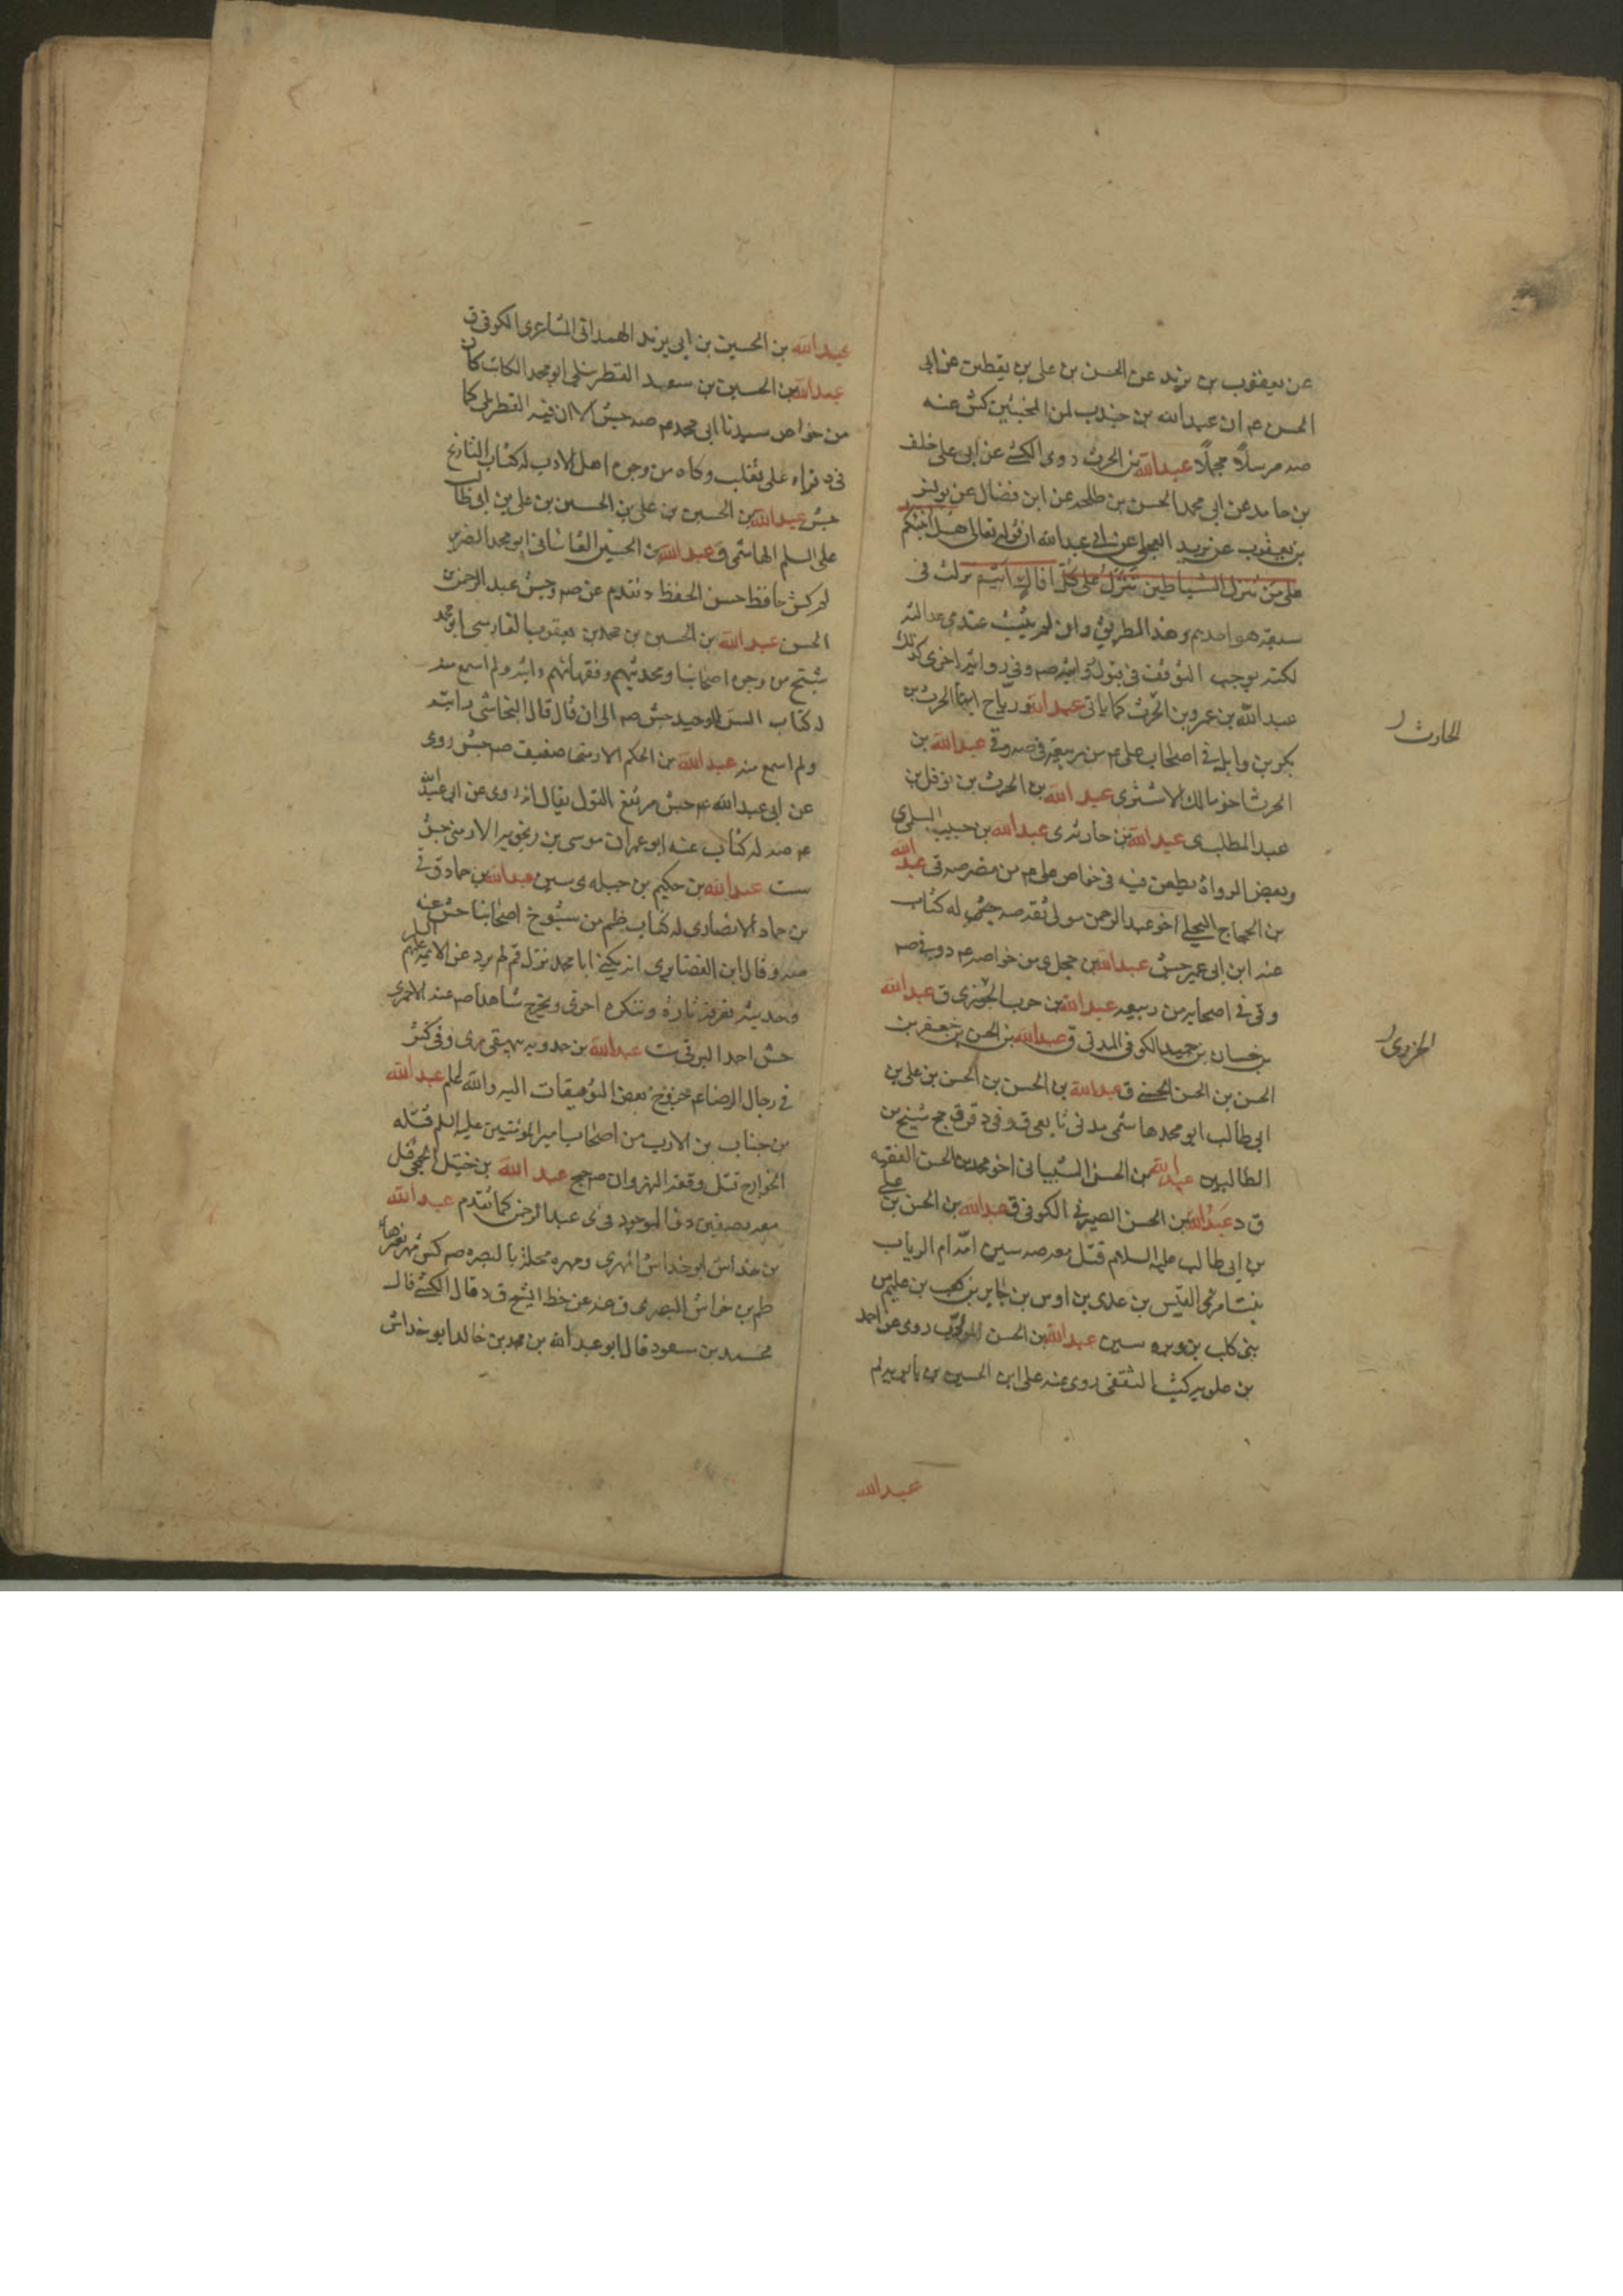 عن يعقوب بن يزيد عن الحسن بن علي بن يقطين عن ابي
الحسن عم ان عبدالله بن جندب لمن المخبتين كش عنه
صه مرسلاً مجملاً عبدالله بن الحرث روى الكشي عن ابي علي خلف
بن حامد عن ابي محمد الحسن بن طلحه عن ابن فضال عن يونس
بن يعقوب عن بريد العجلي عن ابي عبدالله ان قوله تعالى هل انبئكم
على من تنزل الشياطين تنزل على كل افاك اثيم نزلت في
سبعة هو احدهم وهذا الطريق وان لم يثبت عندي عدالته
لكنه يوجب التوقف في قبول روايته صه وفي رواية اخرى كذلك
عبدالله بن عمرو بن الحرث كما ياتي عبدالله ورباح ابنا الحرث بن
بكر بن وايل في اصحاب علي عم من ربيعة في صه وقي عبدالله بن
الحرث اخو مالك الاشتر ى عبدالله بن الحرث بن نوفل بن
عبد المطلب ى عبدالله بن حارثه ى عبدالله بن حبيب السلمي
وبعض الرواة يطعن فيه في خواص علي عم من مضر صه قي عبدالله
بن الحجاج البجلي اخو عبدالرحمن مولى ثقه صه جش له كتاب
عنه ابن ابي عمير جش عبدالله بن حجل ى من خواصه عم
وقي في اصحابه من ربيعه عبدالله بن حرب الجوزي ق عبدالله
بن حسان بن حميد الكوفي المدني ق عبدالله بن الحسن بن جعفر بن
الحسن بن الحسن الحسني ق عبدالله بن الحسن بن الحسن بن علي بن
ابي طالب ابو محمد هاشمي مدني تابعي ق وفي د قر ق جج شيخ من
الطالبين عبدالله بن الحسن الشيباني اخو محمد بن الحسن الفقيه
ق د عبدالله بن الحسن الصيرفي الكوفي ق عبدالله بن الحسن بن علي
بن ابي طالب عليه السلام قتل معه صه سين امه ام الرباب
بنت امرئ القيس بن عدي بن اوس بن جابر بن كعب بن عليم من
بني كلب بن وبره سين عبدالله بن الحسن المؤدب روى عن احمد
بن علويه كتب الثقفي روى عنه علي ابن الحسين بن بابويه لم
عبدالله
الحارث ر
الجزري ر
عبدالله بن الحسين بن ابي يزيد الهمداني المشاعري الكوفي ق
عبدالله بن الحسين بن سعيد القطربلي ابو محمد الكاتب كان
من خواص سيدنا ابي محمد عم صه جش الا ان فيه القطربلي كما
في د قراء على ثعلب وكان من وجوه اهل الادب له كتاب التاريخ
جش عبدالله بن الحسين بن علي بن الحسين بن علي بن ابي طالب
على السلم الهاشمي ق عبدالله بن الحسين القاشاني ابو محمد الضرير
لم كش حافظ حسن الحفظ د تقدم عن صه وجش عبدالرحمن
الحسن عبدالله بن الحسين بن محمد بن يعقوب الفارسي ابو محمد
شيخ من وجوه اصحابنا ومحدثيهم وفقهائهم رايته ولم اسمع منه
له كتاب انس الوحيد جش صه الى ان قال قال النجاشي رايته
ولم اسمع منه عبدالله بن الحكم الارمني ضعيف صه جش روى
عن ابي عبدالله عم جش مرتفع القول يقال انه روى عن ابي عبدالله
عم صه له كتاب عنه ابو عمران موسى بن زنجويه الارمني جش
ست عبدالله بن حكيم بن جبله ى سين عبدالله بن حماد ق في
بن حماد الانصاري له كتاب ظم من شيوخ اصحابنا جش عنه
صه وقال ابن الغضايري انه يكنى ابا محمد نزل قم لم يرو عن الائمه عليهم السلم
وحديثه يعرف تارة وينكر اخرى ويخرج شاهدا صه عنه الاحمري
جش احمد البرقي ست عبدالله بن حدويه بيهقي رى وفي كش
بن جناب بن الارت من اصحاب امير المؤمنين عليه السلم قتله
الخوارج قبل وقعة النهروان صه جج عبدالله بن
معه بصفين د ق الموجود في ى عبدالرحمن كما تقدم عبدالله
بن خداش ابو خداش المهري ومهره محلة بالبصره صه كش
ظم بن خراش البصري ق صه عن خط الشيخ ق د قال الكشي قال
محمد بن مسعود قال ابو عبدالله بن محمد بن خالد ابو خداش